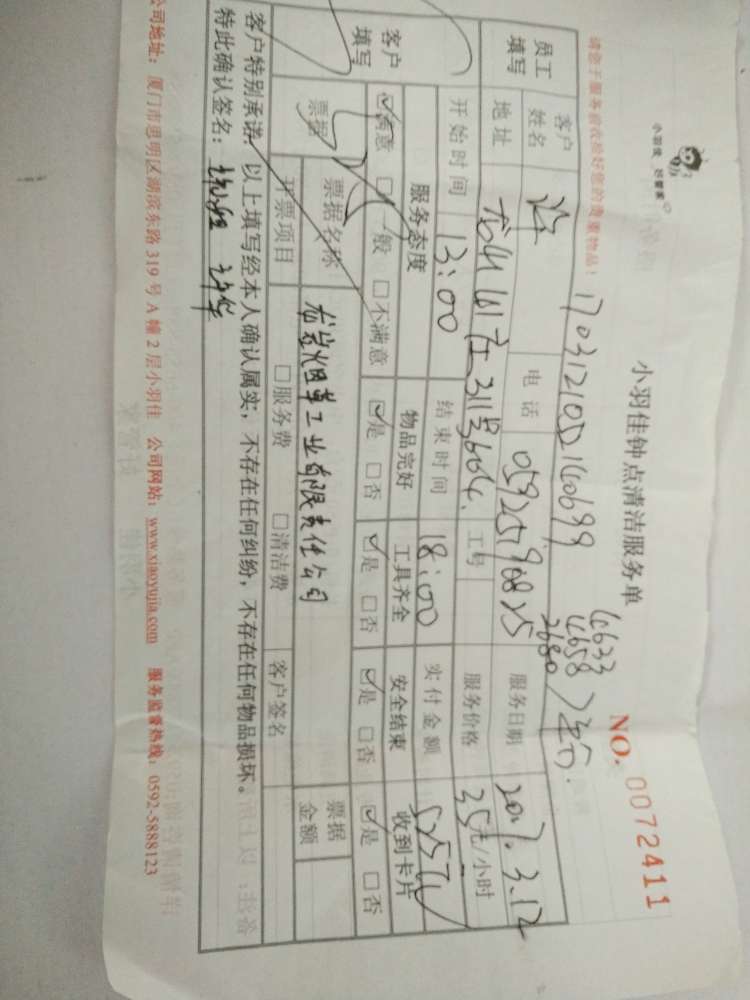 小羽佳 好管家
小羽佳钟点清洁服务单
NO. 0072411
请您于服务前收拾好您的贵重物品!
17031210501140699
4633
4658
2680
员工填写
客户姓名 许 电话 05925190825 服务日期 2017.3.12
地址 311号3604. 工号 服务价格 35元/小时
开始时间 13:00 结束时间 18:00 实付金额 525元
客户填写
服务态度 物品完好 工具齐全 安全结束 收到卡片
☑满意 □一般 □不满意 ☑是 □否 ☑是 □否 ☑是 □否 ☑是 □否
票据 票据名称 龙岩烟草工业有限责任公司 票据金额
开票项目 □服务费 □清洁费 客户签名
客户特别承诺: 以上填写经本人确认属实, 不存在任何纠纷, 不存在任何物品损坏。
特此确认签名:
公司地址: 厦门市思明区湖滨东路 319 号 A 幢 2 层小羽佳 公司网站: www.xiaoyujia.com 服务监督热线: 0592-5888123